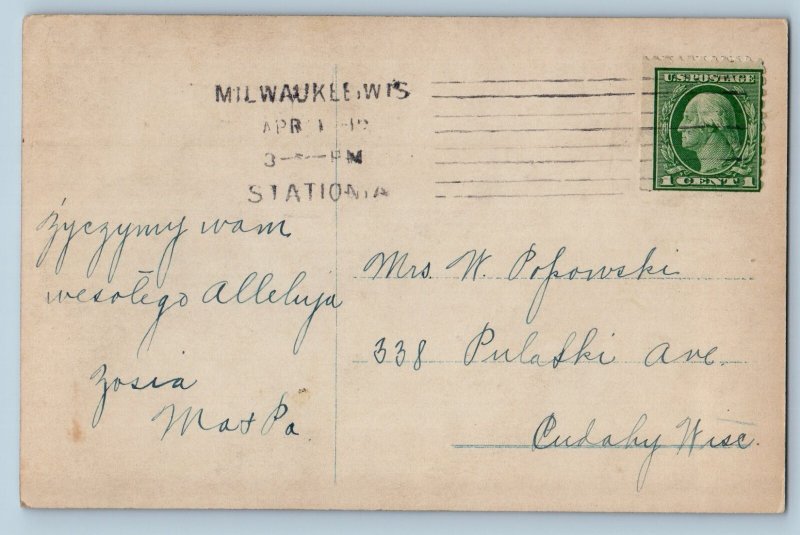 MILWAUKEE, WIS
APR 1
3-PM
STATION A
U.S. POSTAGE
1 CENT 1
życzymy wam
wesołego Alleluja
Zosia
Ma & Pa
Mrs. W. Popowski
338 Pulaski Ave.
Cudahy Wisc.